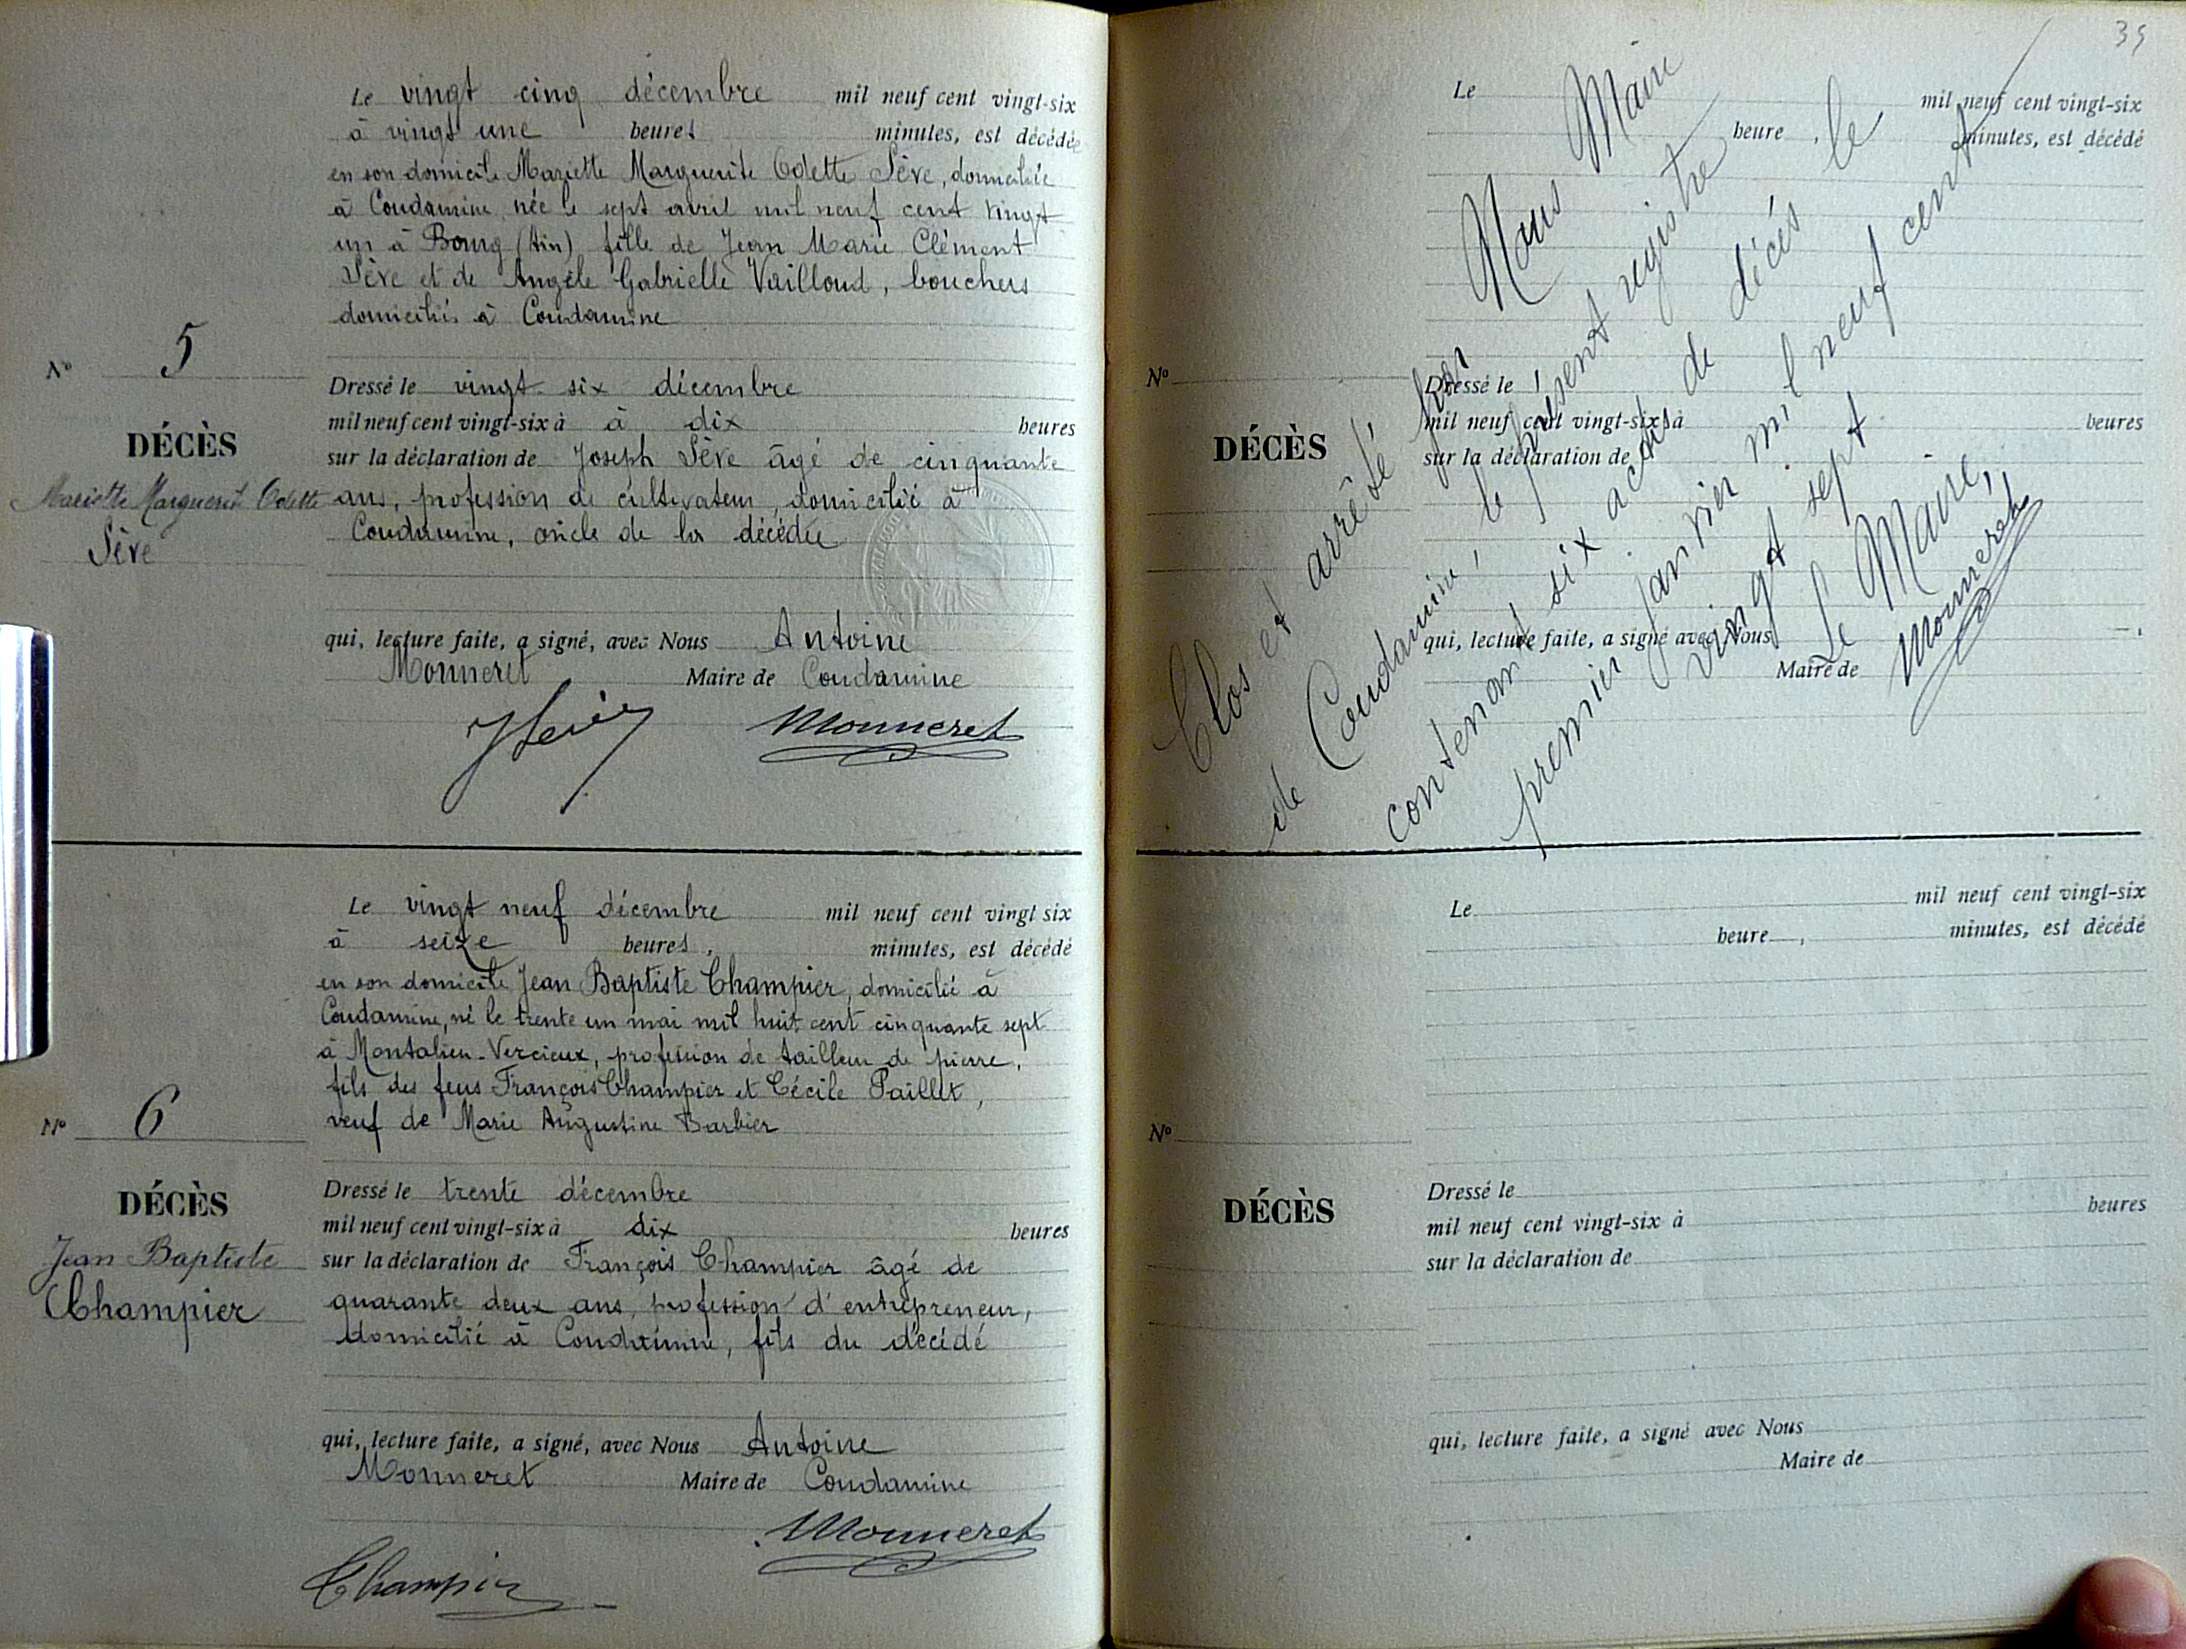 Le vingt cinq décembre mil neuf cent vingt-six
à vingt une heures minutes, est décédée
en son domicile Mariette Marguerite Odette Sève, domiciliée
à Condamine, née le sept avril mil neuf cent vingt
un à Bourg (Ain) fille de Jean Marie Clément
Sève et de Angèle Gabrielle Vailloud, bouchers
domiciliés à Condamine
N° 5
DÉCÈS
Mariette Marguerite Odette
Sève
Dressé le vingt six décembre
mil neuf cent vingt-six à à dix heures
sur la déclaration de Joseph Sève âgé de cinquante
ans, profession de cultivateur, domicilié à
Condamine, oncle de la décédée
qui, lecture faite, a signé, avec Nous Antoine
Monneret Maire de Condamine
Monneret
Le vingt neuf décembre mil neuf cent vingt six
à seize heures, minutes, est décédé
en son domicile Jean Baptiste Champier, domicilié à
Condamine, né le trente un mai mil huit cent cinquante sept
à Montalieu-Vercieux, profession de tailleur de pierre,
fils des feus François Champier et Cécile Paillet,
veuf de Marie Augustine Barbier
N° 6
DÉCÈS
Jean Baptiste
Champier
Dressé le trente décembre
mil neuf cent vingt-six à dix heures
sur la déclaration de François Champier âgé de
quarante deux ans, profession d'entrepreneur,
domicilié à Condamine, fils du décédé
qui, lecture faite, a signé, avec Nous Antoine
Monneret Maire de Condamine
Monneret
Champier
35
Le mil neuf cent vingt-six
heure , minutes, est décédé
N°
DÉCÈS
Dressé le
mil neuf cent vingt-six à heures
sur la déclaration de
qui, lecture faite, a signé avec Nous
Maire de
Clos et arrêté par Nous Maire
de Condamine, le présent registre
contenant six actes de décés le
premier janvier mil neuf cent
vingt sept
Le Maire,
Monneret
Le mil neuf cent vingt-six
heure , minutes, est décédé
N°
DÉCÈS
Dressé le
mil neuf cent vingt-six à heures
sur la déclaration de
qui, lecture faite, a signé avec Nous
Maire de